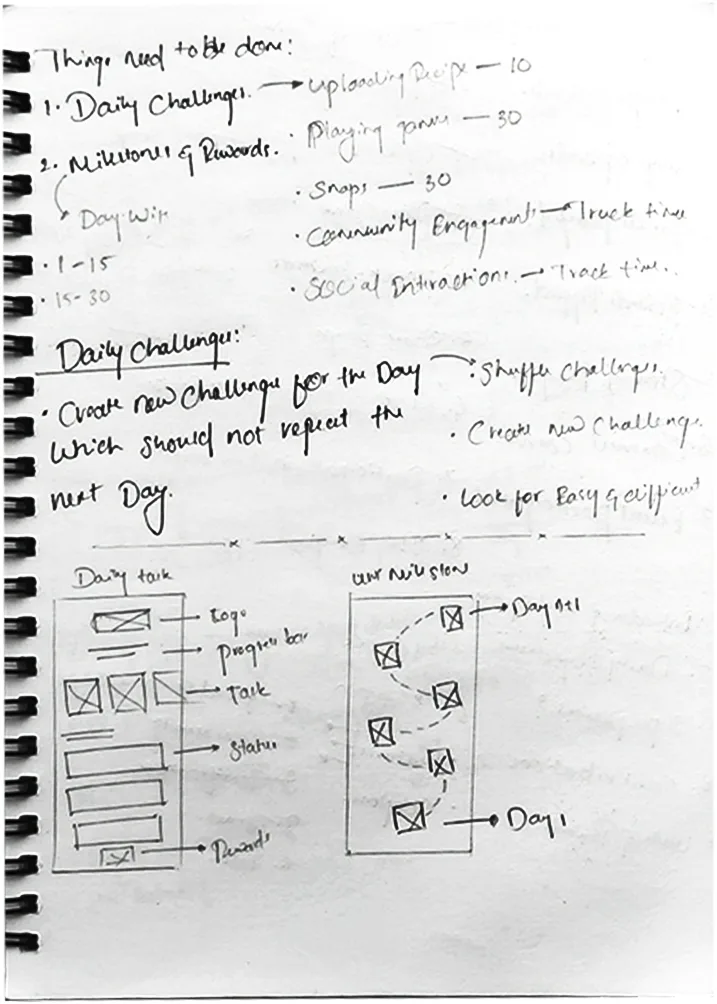 Things need to be done:
1. Daily Challenges. → Uploading Recipe — 10
• Playing games — 30
2. Milestones & Rewards.
• Snaps — 30
Day Win
• Community Engagement → Track time
• 1 - 15
• Social Interactions. → Track time.
• 15 - 30
Daily Challenges:
• Create new challenge for the Day
which should not repeat the
next Day.
• Shuffle challenges.
• Create new challenge.
• Look for Easy & difficult
Daily task
Logo
Progress bar
Task
Status
Rewards
Milestone
Day n+1
Day 1